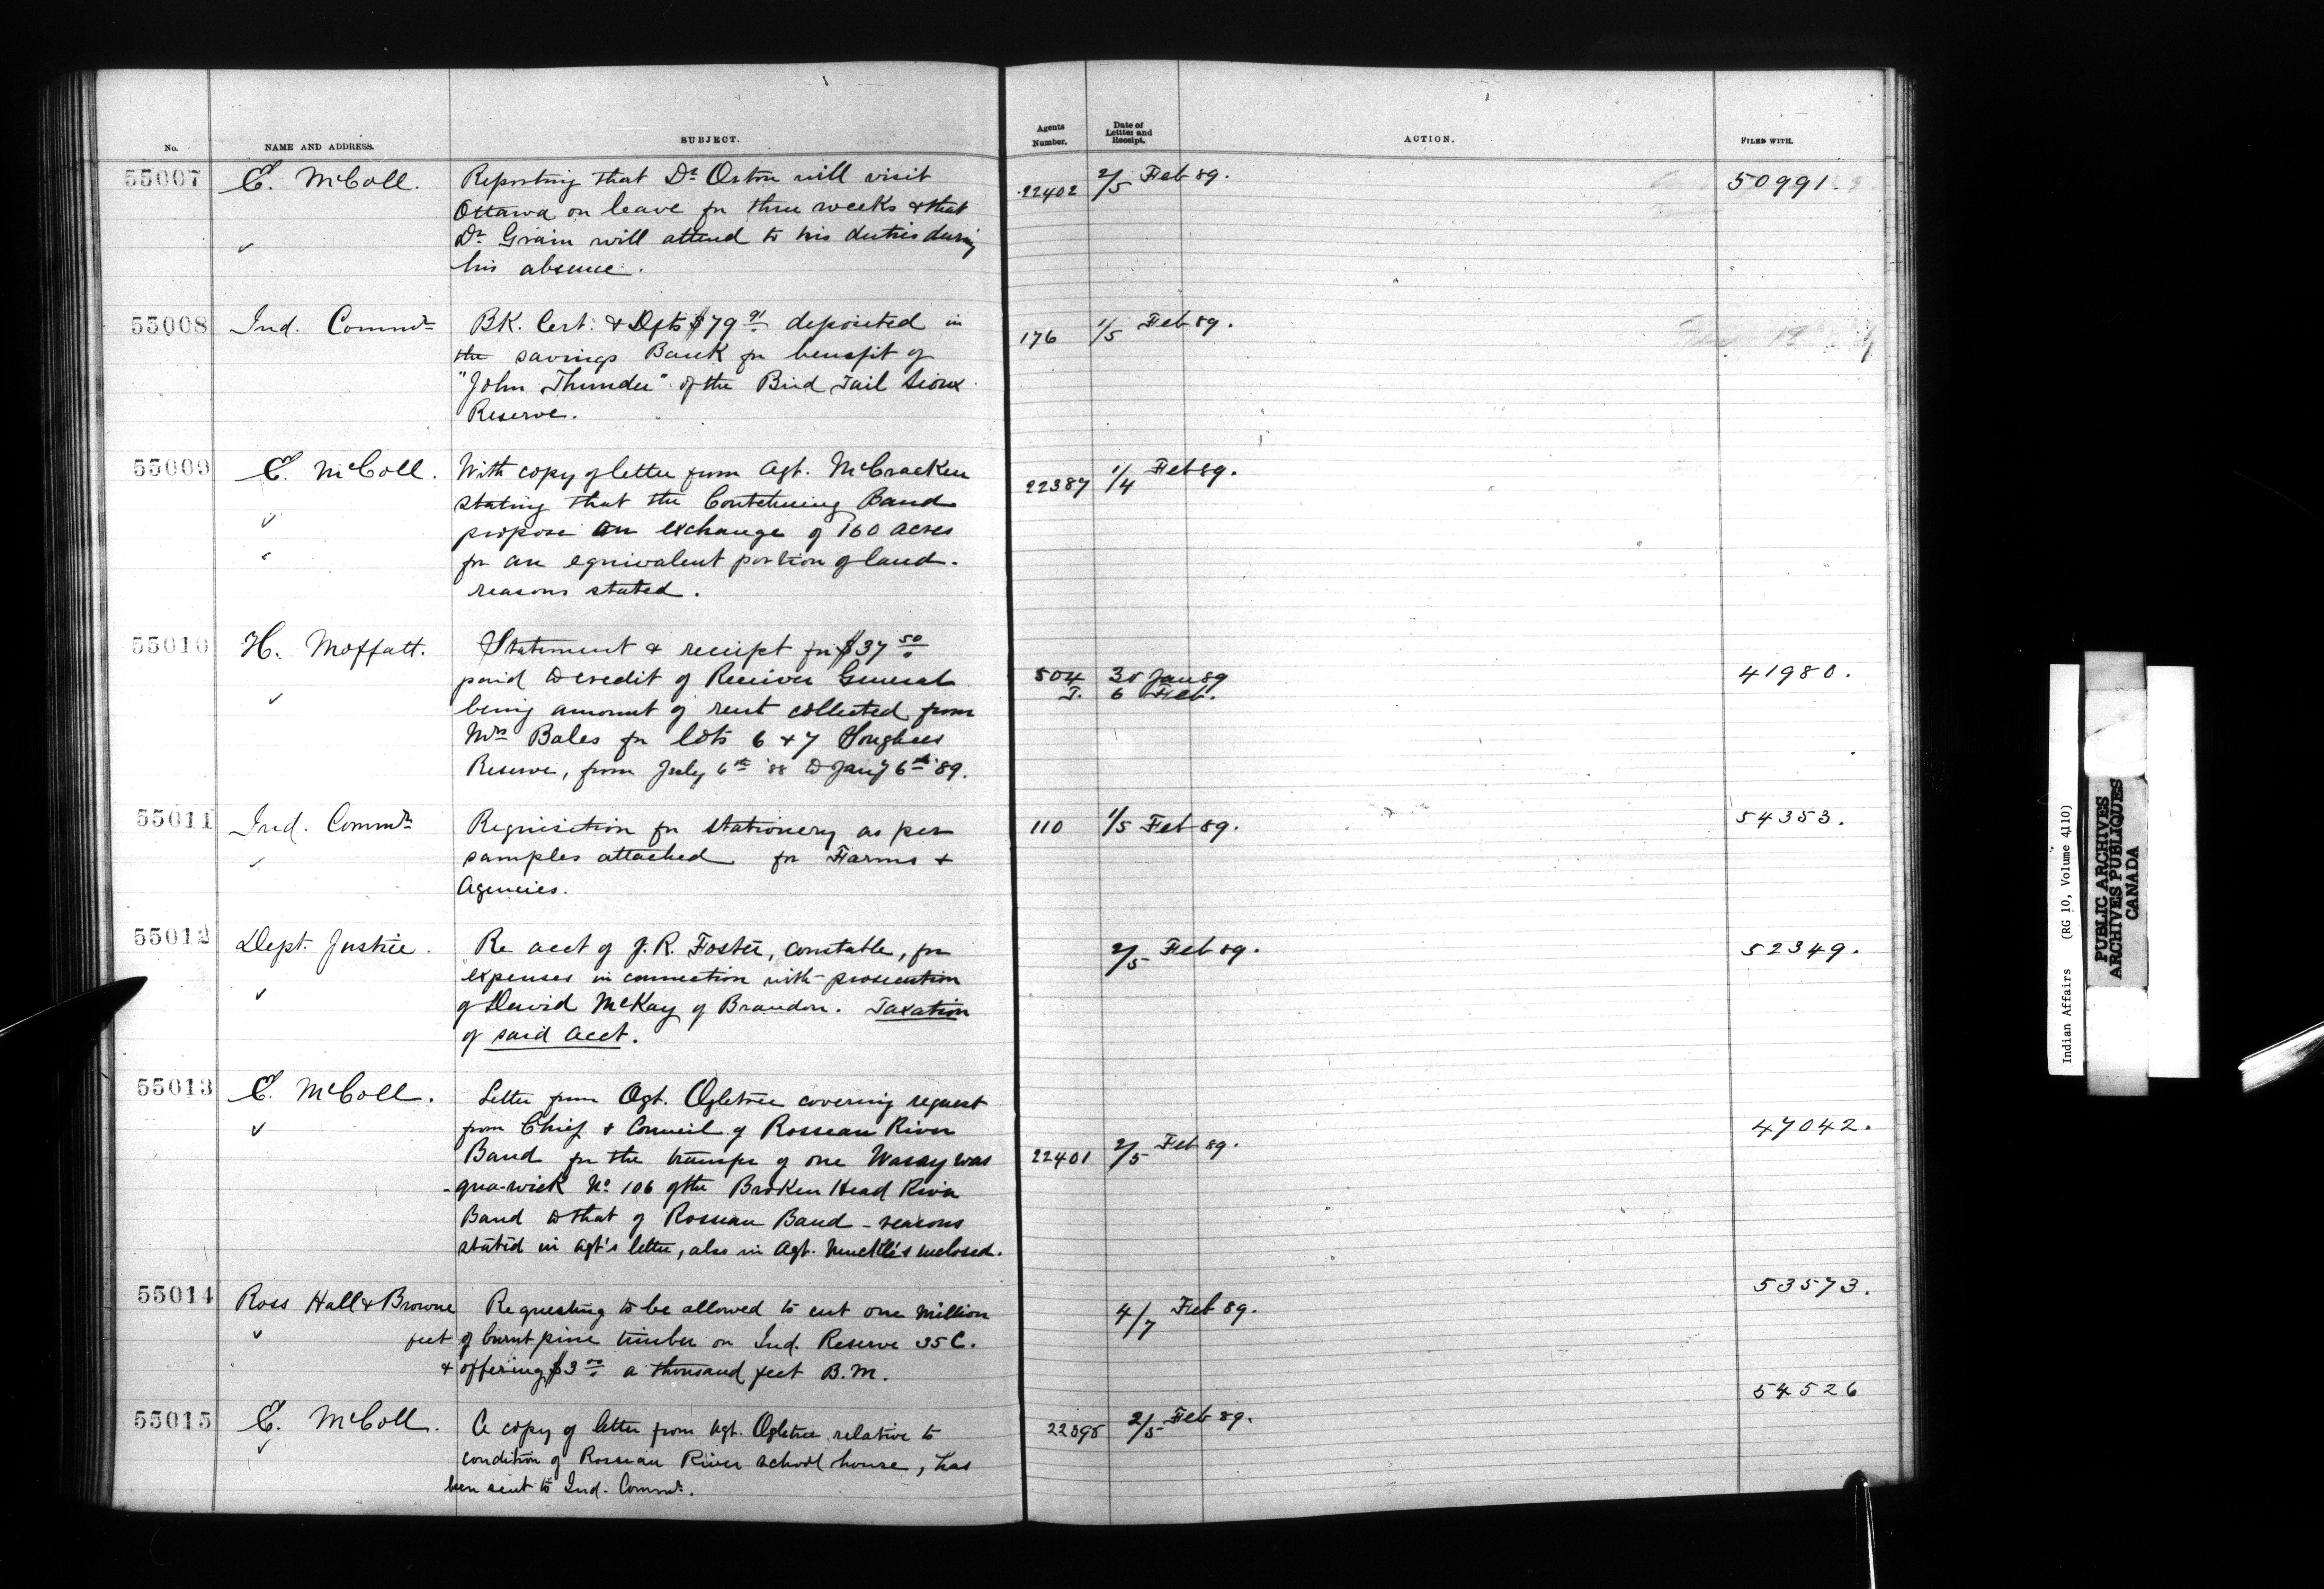 No. NAME AND ADDRESS. SUBJECT. Agents Number. Date of Letter and Receipt. ACTION. FILED WITH.
55007 E. McColl. Reporting that Dr Orton will visit 22402 2/5 Feb 89. 50991.
Ottawa on leave for three weeks & that
Dr Grain will attend to his duties during
his absence.
55008 Ind. Commr BK. Cert. & Dfts $79 91 deposited in 176 1/5 Feb 89.
the savings Bank for benefit of
"John Thunder" of the Bird Tail Sioux
Reserve.
55009 E. McColl. With copy of letter from Agt. McCracken 22387 1/4 Feb 89.
stating that the Coutcheching Band
propose an exchange of 160 acres
for an equivalent portion of land.
reasons stated.
55010 H. Moffatt. Statement & receipt for $37 50
paid to credit of Receiver General 504 30 Jan 89 41980.
T. 6 Feb.
being amount of rent collected from
Mrs Bales for lots 6 & 7 Songhees
Reserve, from July 6th '88 to Jany 6th '89.
55011 Ind. Commr Requisition for stationery as per 110 1/5 Feb 89. 54353.
samples attached for Farms &
Agencies.
55012 Dept. Justice. Re acct of J. R. Foster, constable, for 2/5 Feb 89. 52349.
expenses in connection with prosecution
of David McKay of Brandon. Taxation
of said acct.
55013 E. McColl. Letter from Agt. Ogletree covering request
from Chief & Council of Rosseau River 47042.
Band for the transfer of one Wasaywas 22401 2/5 Feb 89.
-qua-wick No 106 of the Broken Head River
Band to that of Rosseau Band - reasons
stated in agt's letter, also in Agt. Muckle's inclosed.
55014 Ross Hall & Browne Requesting to be allowed to cut one million 4/7 Feb 89. 53573.
feet of burnt pine timber on Ind. Reserve 35 C.
& offering $3 00 a thousand feet B.M.
55015 E. McColl. A copy of letter from Agt. Ogletree relative to 2/5 Feb 89. 54526
condition of Rosseau River school house, has
been sent to Ind. Commr.
Indian Affairs (RG 10, Volume 4110)
PUBLIC ARCHIVES
ARCHIVES PUBLIQUES
CANADA